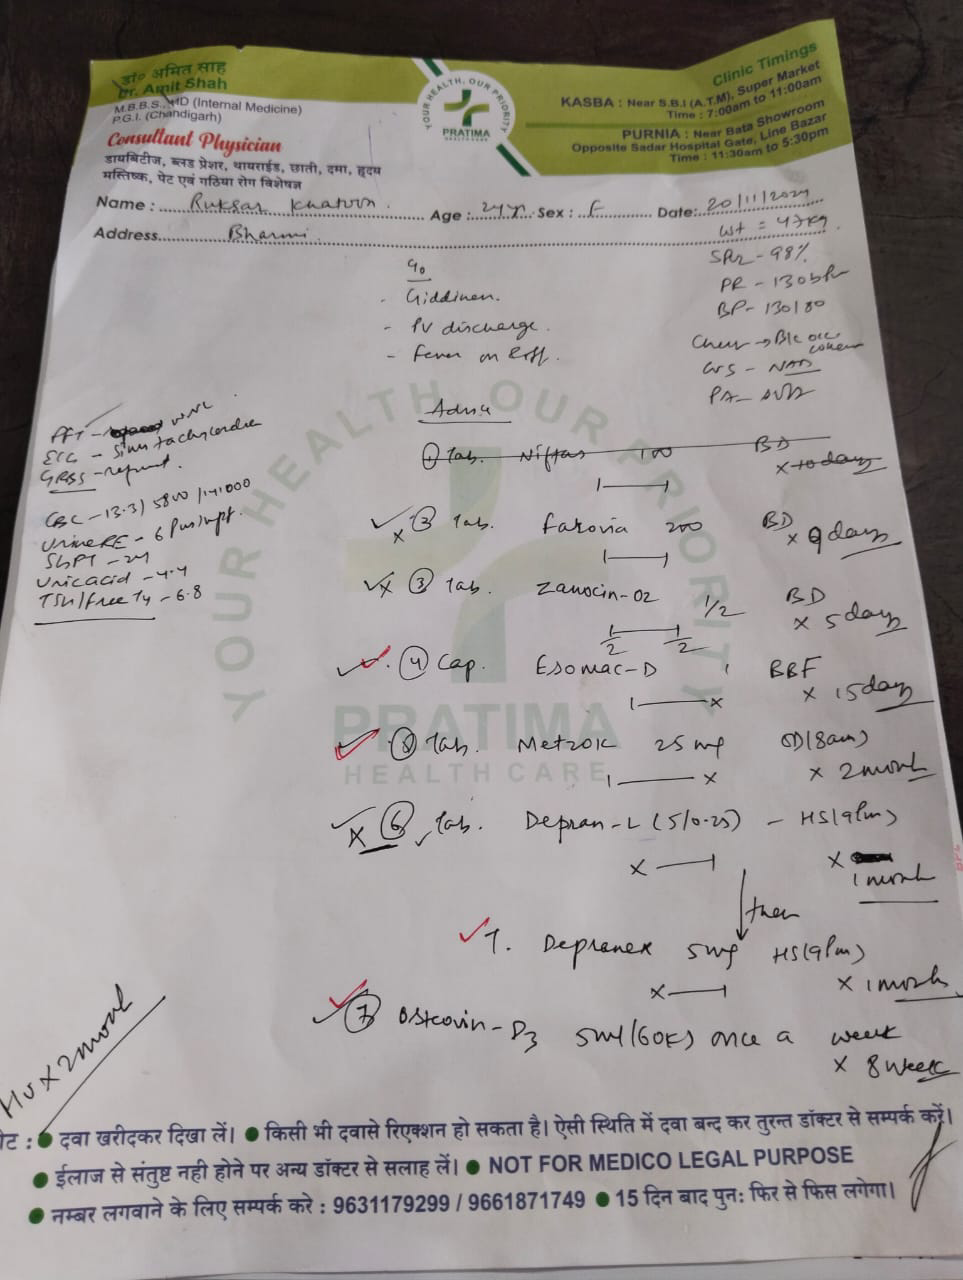 डा० अमित साह
Dr. Amit Shah
M.B.B.S., MD (Internal Medicine)
P.G.I. (Chandigarh)
Consultant Physician
डायबिटीज, ब्लड प्रेशर, थायराईड, छाती, दमा, हृदय
मस्तिष्क, पेट एवं गठिया रोग विशेषज्ञ
YOUR HEALTH, OUR PRIORITY
PRATIMA
HEALTH CARE
Clinic Timings
KASBA : Near S.B.I (A.T.M), Super Market
Time : 7:00am to 11:00am
PURNIA : Near Bata Showroom
Opposite Sadar Hospital Gate, Line Bazar
Time : 11:30am to 5:30pm
Name : Ruksar Khatoon Age : 24yr Sex : F Date: 20/11/2024
Address Bharni
Wt = 47kg
SPO2 - 98%
PR - 130bpm
BP - 130/80
Chest → B/L
CVS - NAD
PA - Soft
C/o
- Giddiness.
- PV discharge.
- Fever on & off.
PFT - WNL
ECG - Sinus tachycardia
GRBS - refused.
CBC - 13.3/5800/141000
Urine RE - 6 Pus/hpf.
SGPT - 24
Uric acid - 4.4
TSH/free T4 - 6.8
Advice
① Tab. Niftas 100 BD
x 10 days
② Tab. Farovia 200 BD
x 9 days
x ③ Tab. Zanocin-OZ 1/2 BD
x 5 days
④ Cap. Esomac-D 1 BBF
x 15 days
Tab. Metzok 25 mg OD (8am)
x 2 month
x ⑥ Tab. Depran-L (5/0.25) - HS (9pm)
x 1 month
then
T. Depranex 5mg HS (9pm)
x 1 month
⑦ Ostcovin-D3 5ml (60K) once a week
x 8 week
x 2 month
YOUR HEALTH OUR PRIORITY
PRATIMA
HEALTH CARE
नोट : ● दवा खरीदकर दिखा लें। ● किसी भी दवासे रिएक्शन हो सकता है। ऐसी स्थिति में दवा बन्द कर तुरन्त डॉक्टर से सम्पर्क करें।
● ईलाज से संतुष्ट नही होने पर अन्य डॉक्टर से सलाह लें। ● NOT FOR MEDICO LEGAL PURPOSE
● नम्बर लगवाने के लिए सम्पर्क करे : 9631179299 / 9661871749 ● 15 दिन बाद पुनः फिर से फिस लगेगा।